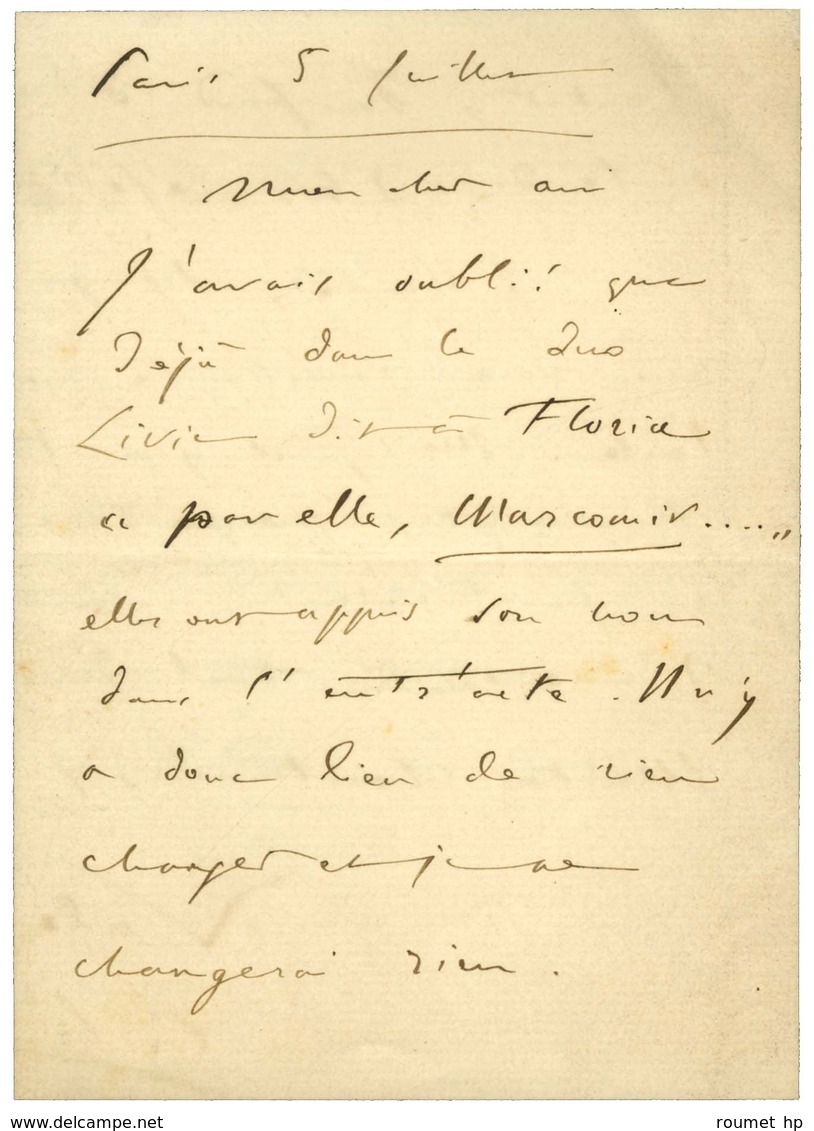 Paris 5 Juillet
Mon cher ami
J'avais oublié que
déjà dans le duo
Livie dit à Floria
" par elle, Marcomir....."
elles ont appris son nom
dans l'entr'acte. Il n'y
a donc lieu de rien
changer et je ne
changerai rien.
roumet hp